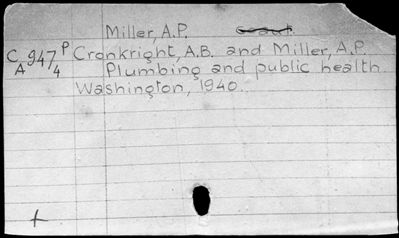 Miller, A.P.
CA 947 P4 Cronkright, A.B. and Miller, A.P.
Plumbing and public health
Washington, 1940.